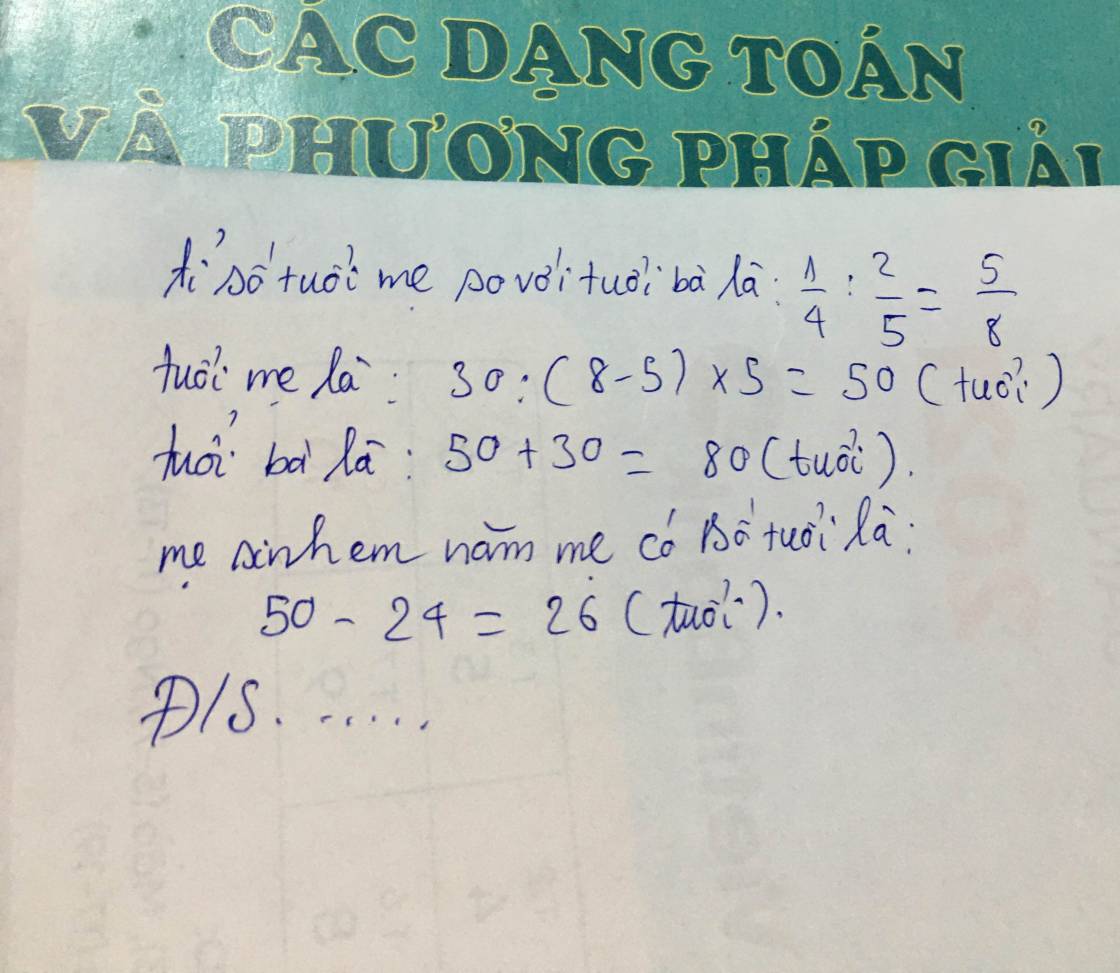 CÁC DẠNG TOÁN
VÀ PHƯƠNG PHÁP GIẢI
tỉ số tuổi mẹ so với tuổi bà là: 1/4 : 2/5 = 5/8
tuổi mẹ là: 30 : (8-5) x 5 = 50 (tuổi)
tuổi bà là: 50 + 30 = 80 (tuổi).
mẹ sinh em năm mẹ có số tuổi là:
50 - 24 = 26 (tuổi).
Đ/S. .....